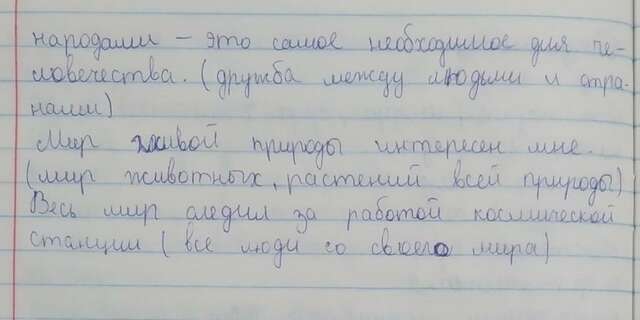 народами – это самое необходимое для че-
ловечества. (дружба между людьми и стра-
нами)
Мир живой природы интересен мне.
(мир животных, растений всей природы)
Весь мир следил за работой космической
станции (все люди со своего мира)